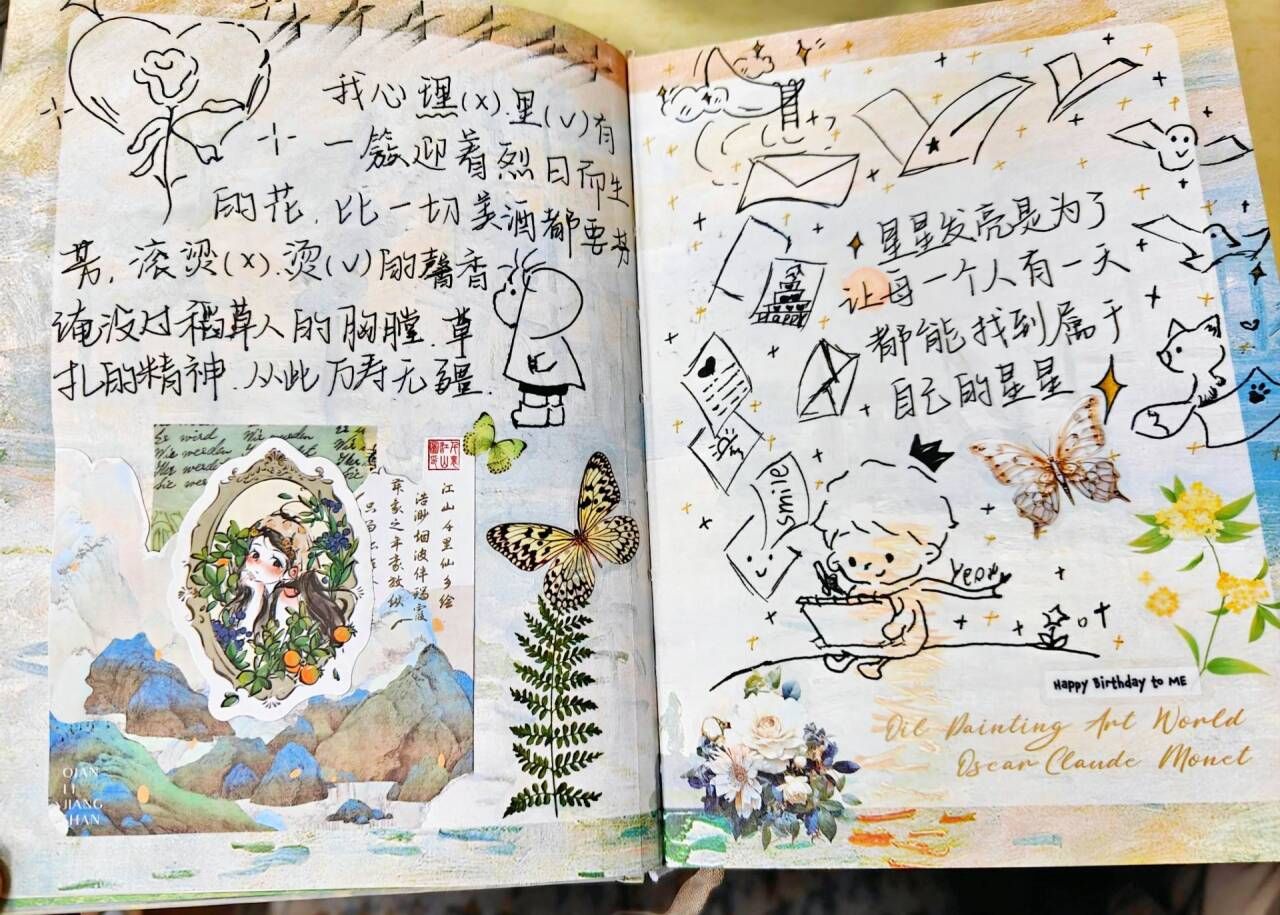 我心埋(x).里(v)有
一簇迎着烈日而生
的花,比一切美酒都要芬
芳,滚烫(x).烫(v)的馨香
淹没过稻草人的胸膛.草
扎的精神.从此万寿无疆.
wie werden
Wir werden
江山千里仙乡绘
浩渺烟波伴瑞霞
QIAN
LI
JIANG
SHAN
星星发亮是为了
让每一个人有一天
都能找到属于
自己的星星
smile
Yeah
Happy Birthday to ME
Oil Painting Art World
Oscar Claude Monet